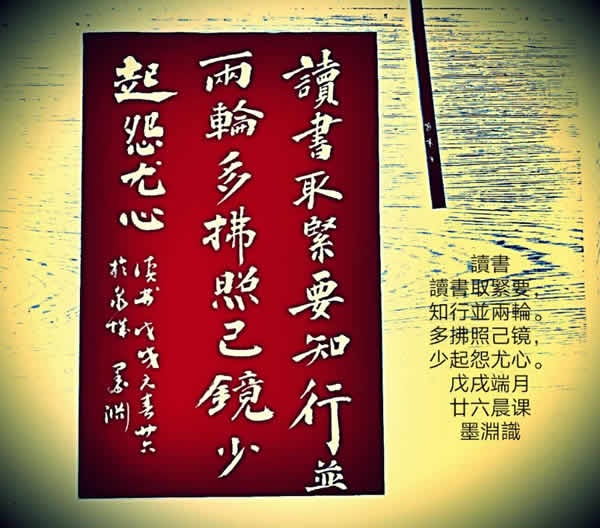 讀書取緊要知行並
兩輪多拂照己鏡少
起怨尤心
讀書戊戌元春廿六
墨淵
讀書
讀書取緊要，
知行並兩輪。
多拂照己镜，
少起怨尤心。
戊戌端月
廿六晨课
墨淵識